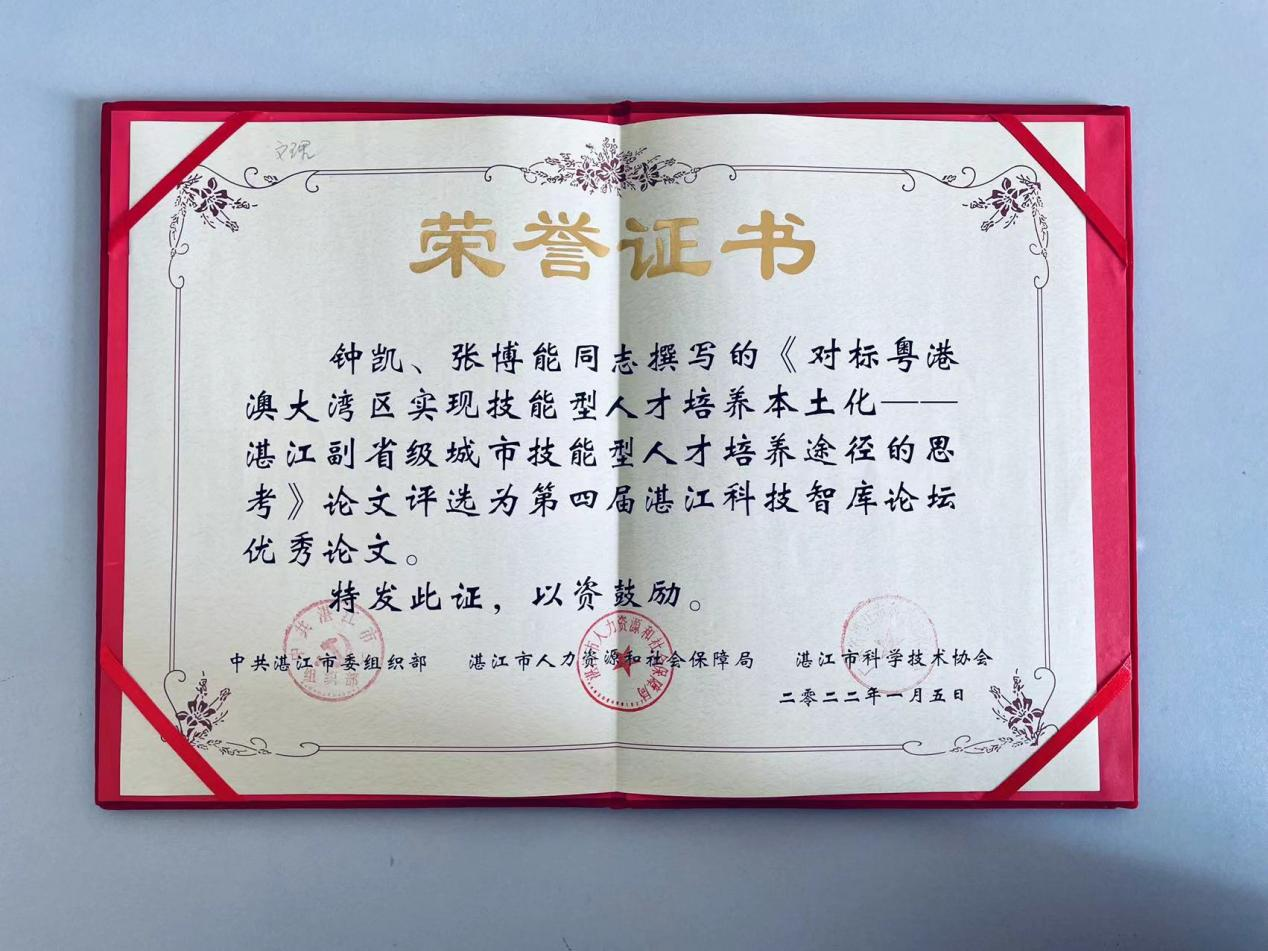 文理
荣誉证书
钟凯、张博能同志撰写的《对标粤港
澳大湾区实现技能型人才培养本土化——
湛江副省级城市技能型人才培养途径的思
考》论文评选为第四届湛江科技智库论坛
优秀论文。
特发此证，以资鼓励。
中共湛江市委组织部 湛江市人力资源和社会保障局 湛江市科学技术协会
二零二二年一月五日